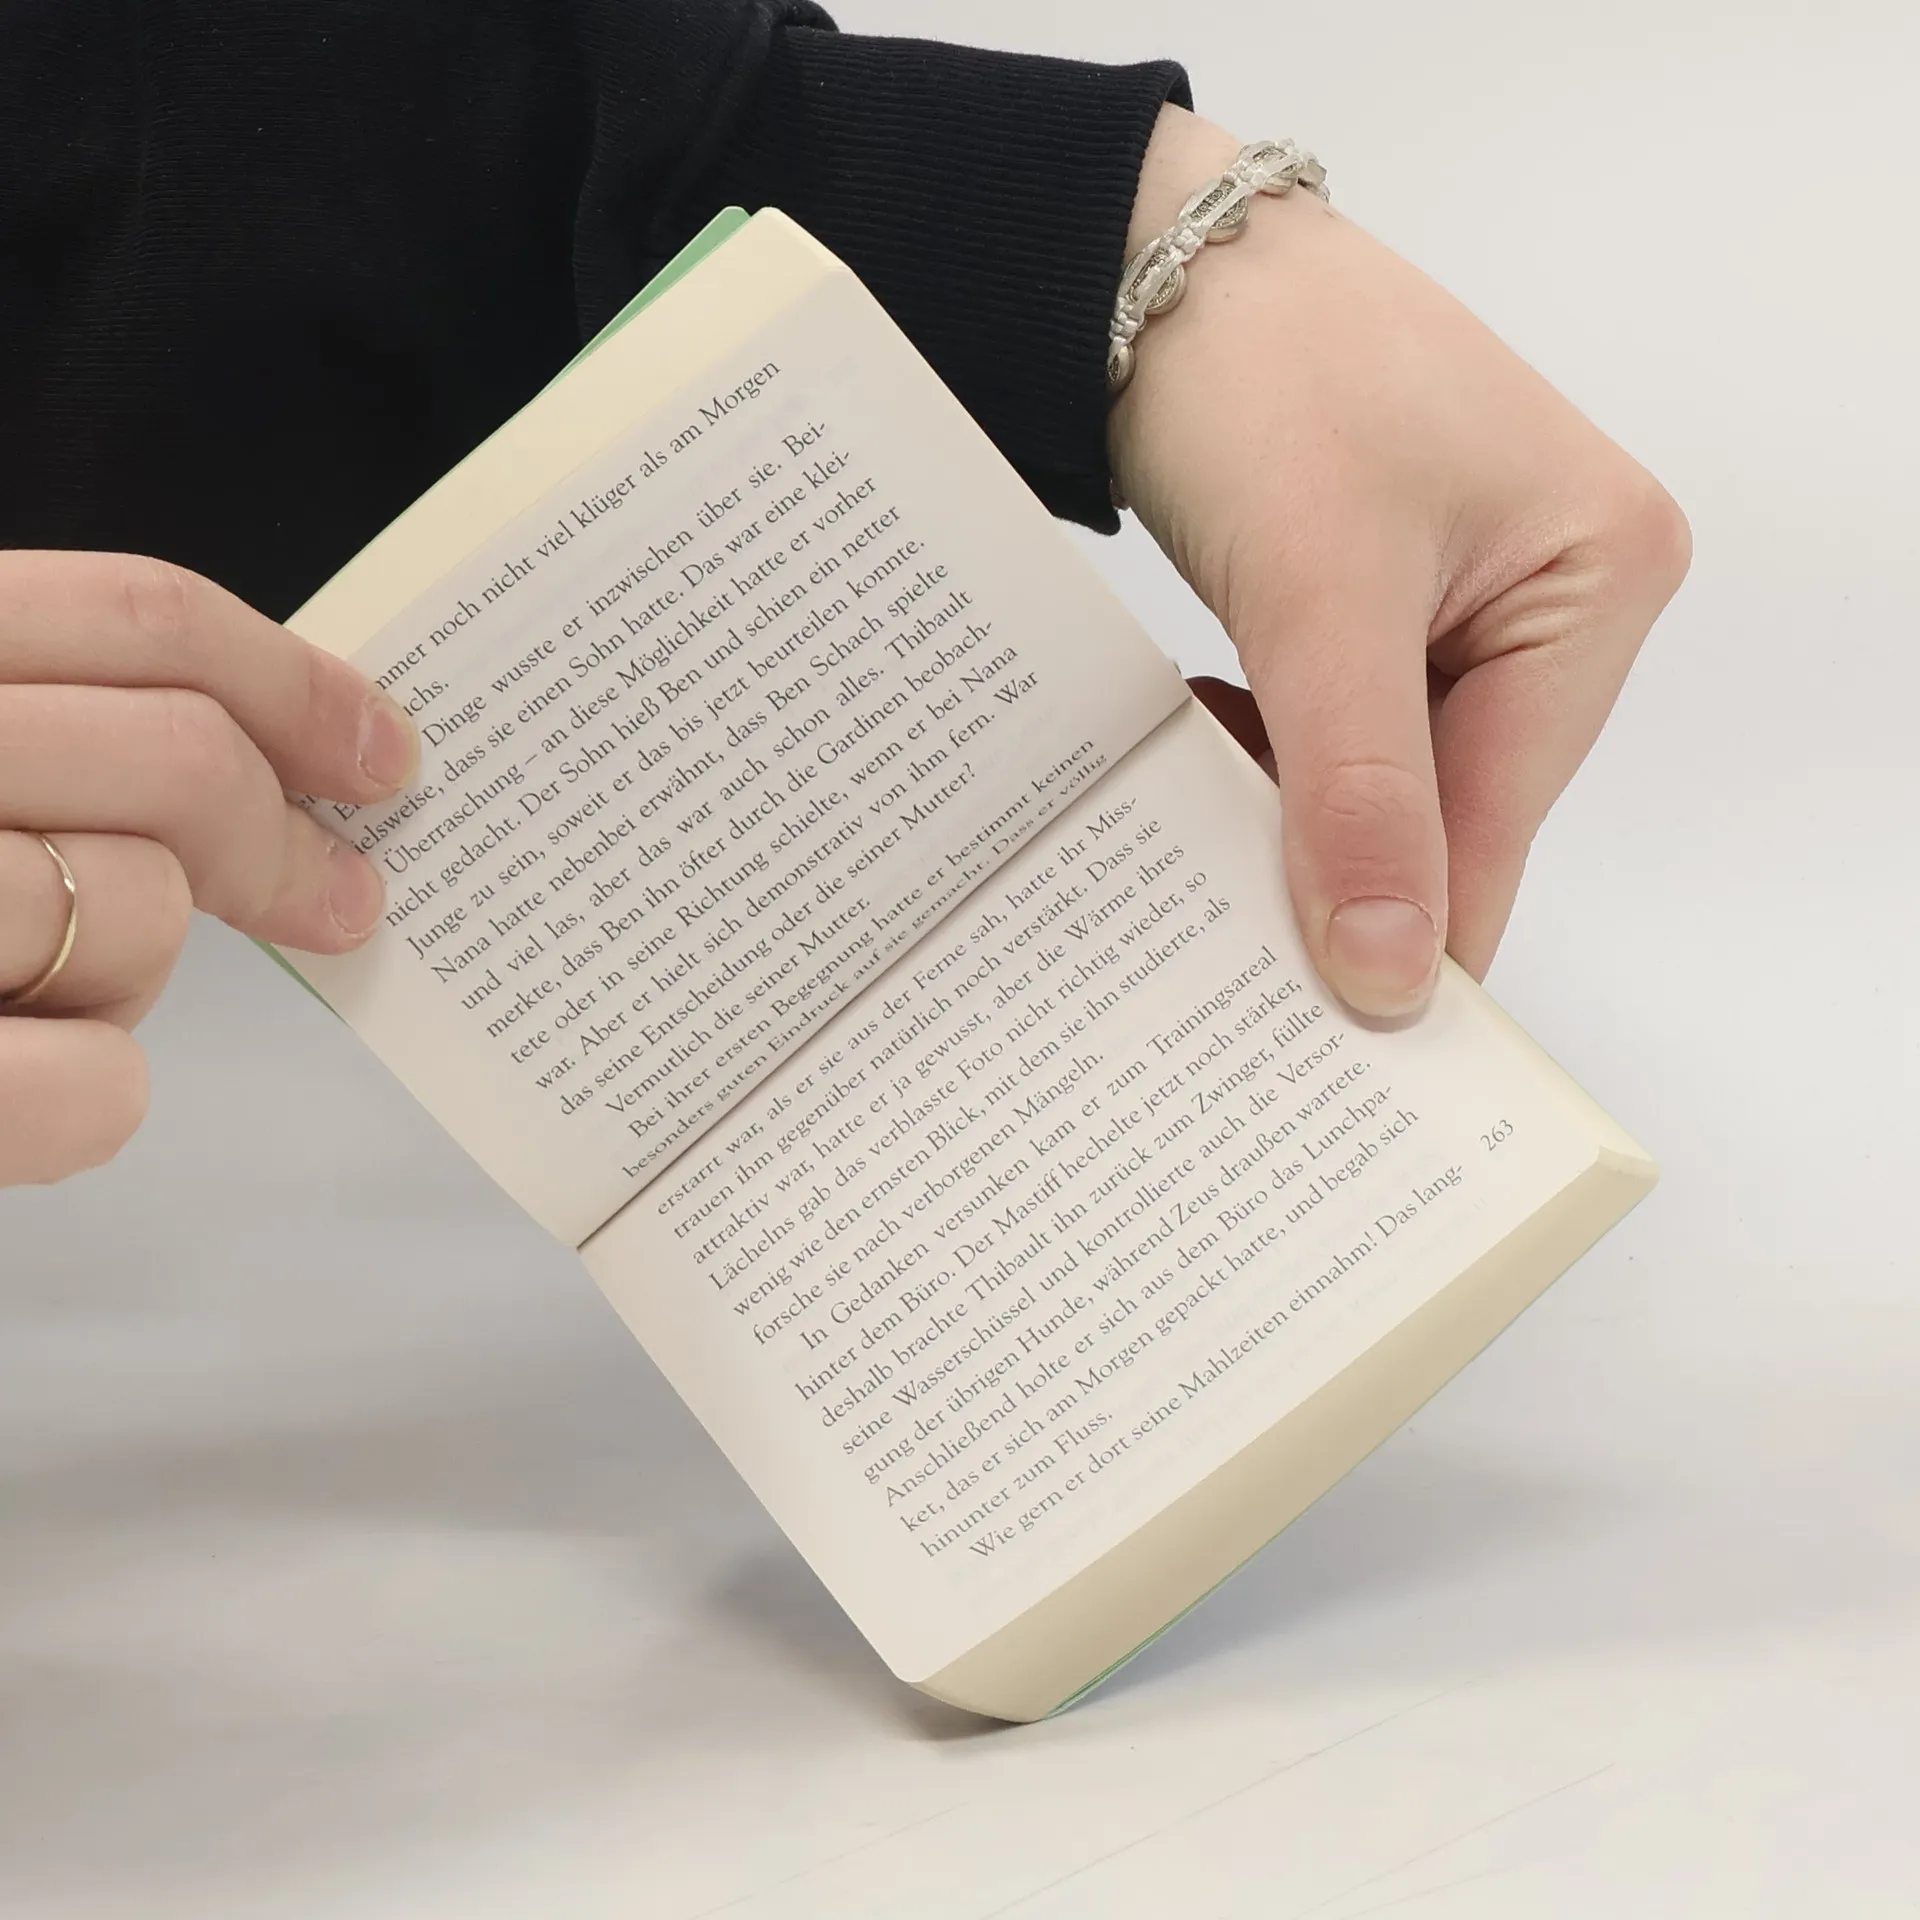 mmer noch nicht viel klüger als am Morgen
uchs.
Dinge wusste er inzwischen über sie. Bei-
ielsweise, dass sie einen Sohn hatte. Das war eine klei-
Überraschung – an diese Möglichkeit hatte er vorher
nicht gedacht. Der Sohn hieß Ben und schien ein netter
Junge zu sein, soweit er das bis jetzt beurteilen konnte.
Nana hatte nebenbei erwähnt, dass Ben Schach spielte
und viel las, aber das war auch schon alles. Thibault
merkte, dass Ben ihn öfter durch die Gardinen beobach-
tete oder in seine Richtung schielte, wenn er bei Nana
war. Aber er hielt sich demonstrativ von ihm fern. War
das seine Entscheidung oder die seiner Mutter?
Vermutlich die seiner Mutter.
Bei ihrer ersten Begegnung hatte er bestimmt keinen
besonders guten Eindruck auf sie gemacht. Dass er völlig
erstarrt war, als er sie aus der Ferne sah, hatte ihr Miss-
trauen ihm gegenüber natürlich noch verstärkt. Dass sie
attraktiv war, hatte er ja gewusst, aber die Wärme ihres
Lächelns gab das verblasste Foto nicht richtig wieder, so
wenig wie den ernsten Blick, mit dem sie ihn studierte, als
forsche sie nach verborgenen Mängeln.
In Gedanken versunken kam er zum Trainingsareal
hinter dem Büro. Der Mastiff hechelte jetzt noch stärker,
deshalb brachte Thibault ihn zurück zum Zwinger, füllte
seine Wasserschüssel und kontrollierte auch die Versor-
gung der übrigen Hunde, während Zeus draußen wartete.
Anschließend holte er sich aus dem Büro das Lunchpa-
ket, das er sich am Morgen gepackt hatte, und begab sich
hinunter zum Fluss.
Wie gern er dort seine Mahlzeiten einnahm! Das lang-
263